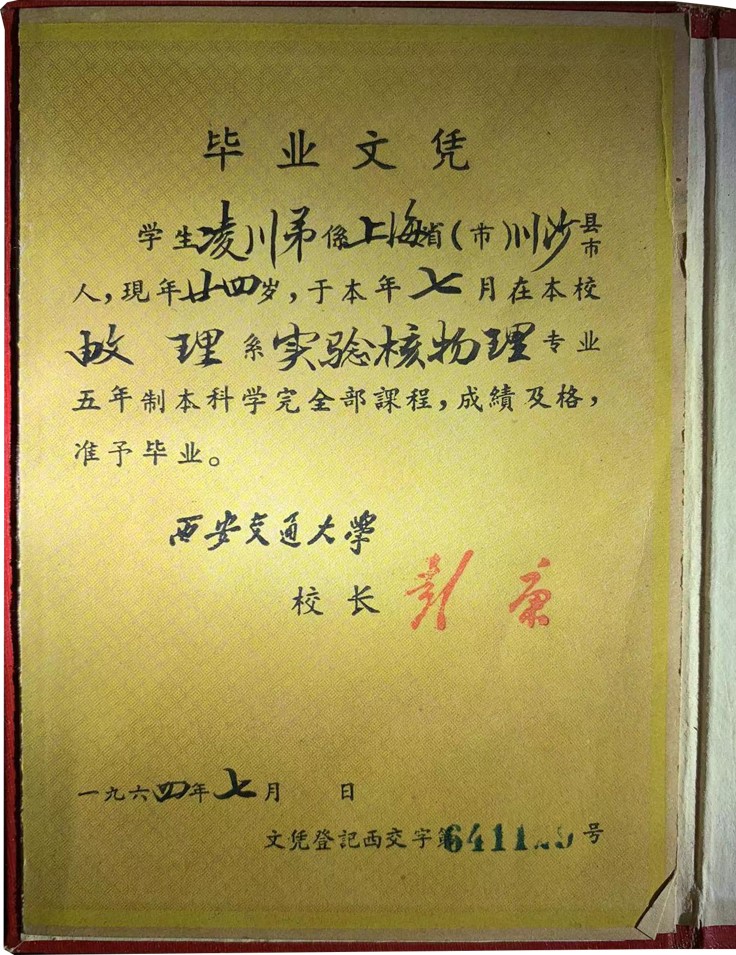 毕业文凭
学生凌川弟係上海省(市)川沙县市
人,現年廿四岁,于本年七月在本校
数理系实验核物理专业
五年制本科学完全部課程,成績及格,
准予毕业。
西安交通大學
校长 彭康
一九六四年七月 日
文凭登記西交字第号